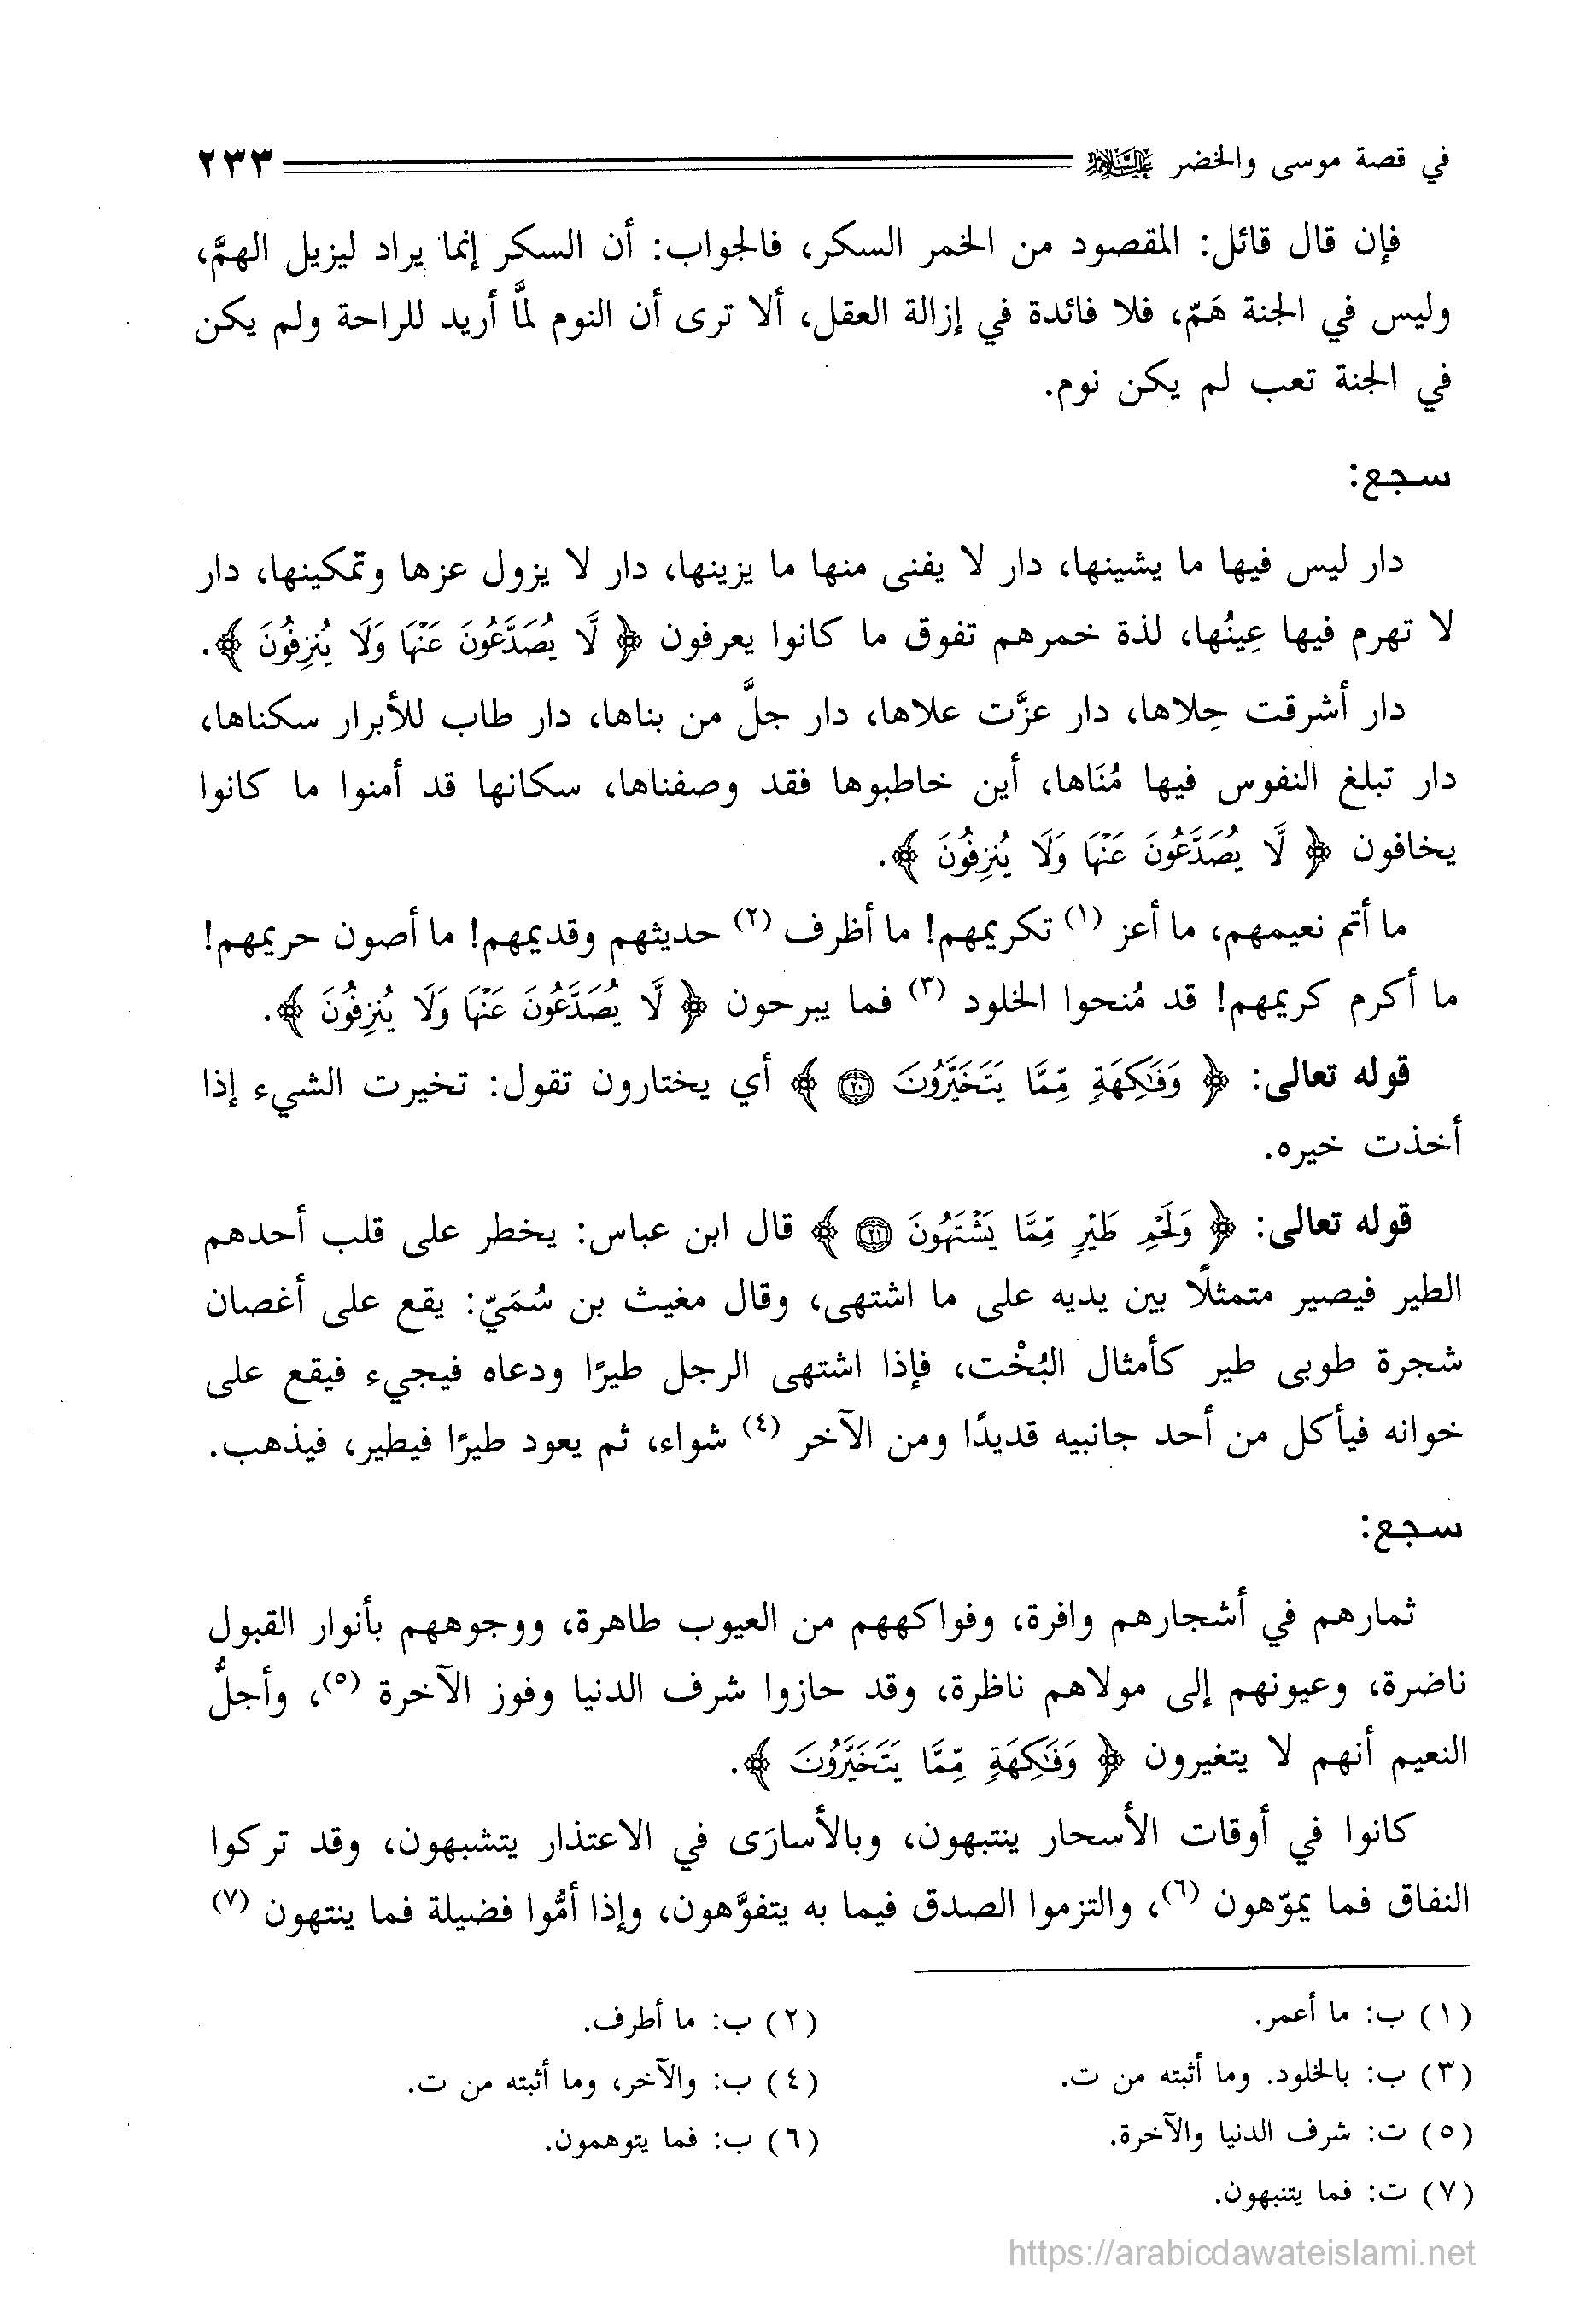 في قصة موسى والخضر عليهما السلام ٢٣٣
فإن قال قائل: المقصود من الخمر السكر، فالجواب: أن السكر إنما يراد ليزيل الهمَّ،
وليس في الجنة هَمّ، فلا فائدة في إزالة العقل، ألا ترى أن النوم لمَّا أريد للراحة ولم يكن
في الجنة تعب لم يكن نوم.
سجع:
دار ليس فيها ما يشينها، دار لا يفنى منها ما يزينها، دار لا يزول عزها وتمكينها، دار
لا تهرم فيها عِينُها، لذة خمرهم تفوق ما كانوا يعرفون ﴿ لَّا يُصَدَّعُونَ عَنْهَا وَلَا يُنزِفُونَ ﴾.
دار أشرقت حِلاها، دار عزَّت علاها، دار جلَّ من بناها، دار طاب للأبرار سكناها،
دار تبلغ النفوس فيها مُنَاها، أين خاطبوها فقد وصفناها، سكانها قد أمنوا ما كانوا
يخافون ﴿ لَّا يُصَدَّعُونَ عَنْهَا وَلَا يُنزِفُونَ ﴾.
ما أتم نعيمهم، ما أعز (١) تكريمهم! ما أظرف (٢) حديثهم وقديمهم! ما أصون حريمهم!
ما أكرم كريمهم! قد مُنحوا الخلود (٣) فما يبرحون ﴿ لَّا يُصَدَّعُونَ عَنْهَا وَلَا يُنزِفُونَ ﴾.
قوله تعالى: ﴿ وَفَٰكِهَةٍ مِّمَّا يَتَخَيَّرُونَ ٢٠ ﴾ أي يختارون تقول: تخيرت الشيء إذا
أخذت خيره.
قوله تعالى: ﴿ وَلَحْمِ طَيْرٍ مِّمَّا يَشْتَهُونَ ٢١ ﴾ قال ابن عباس: يخطر على قلب أحدهم
الطير فيصير متمثلًا بين يديه على ما اشتهى، وقال مغيث بن سُمَيّ: يقع على أغصان
شجرة طوبى طير كأمثال البُخْت، فإذا اشتهى الرجل طيرًا ودعاه فيجيء فيقع على
خوانه فيأكل من أحد جانبيه قديدًا ومن الآخر (٤) شواء، ثم يعود طيرًا فيطير، فيذهب.
سجع:
ثمارهم في أشجارهم وافرة، وفواكههم من العيوب طاهرة، ووجوههم بأنوار القبول
ناضرة، وعيونهم إلى مولاهم ناظرة، وقد حازوا شرف الدنيا وفوز الآخرة (٥)، وأجلُّ
النعيم أنهم لا يتغيرون ﴿ وَفَٰكِهَةٍ مِّمَّا يَتَخَيَّرُونَ ﴾.
كانوا في أوقات الأسحار ينتبهون، وبالأسارَى في الاعتذار يتشبهون، وقد تركوا
النفاق فما يموّهون (٦)، والتزموا الصدق فيما به يتفوَّهون، وإذا أمُّوا فضيلة فما ينتهون (٧)
(١) ب: ما أعمر. (٢) ب: ما أطرف.
(٣) ب: بالخلود. وما أثبته من ت. (٤) ب: والآخر، وما أثبته من ت.
(٥) ت: شرف الدنيا والآخرة. (٦) ب: فما يتوهمون.
(٧) ت: فما يتنبهون.
https://arabicdawateislami.net